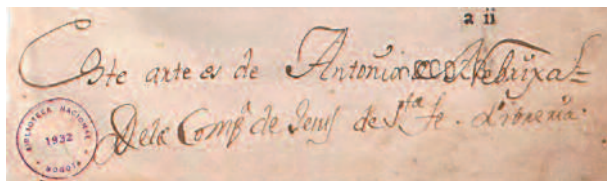 a ii
Este arte es de Antonio de Nebrixa
Dela Compª de Jesus de Sta fe. Libreria.
BIBLIOTECA NACIONAL
1932
BOGOTA